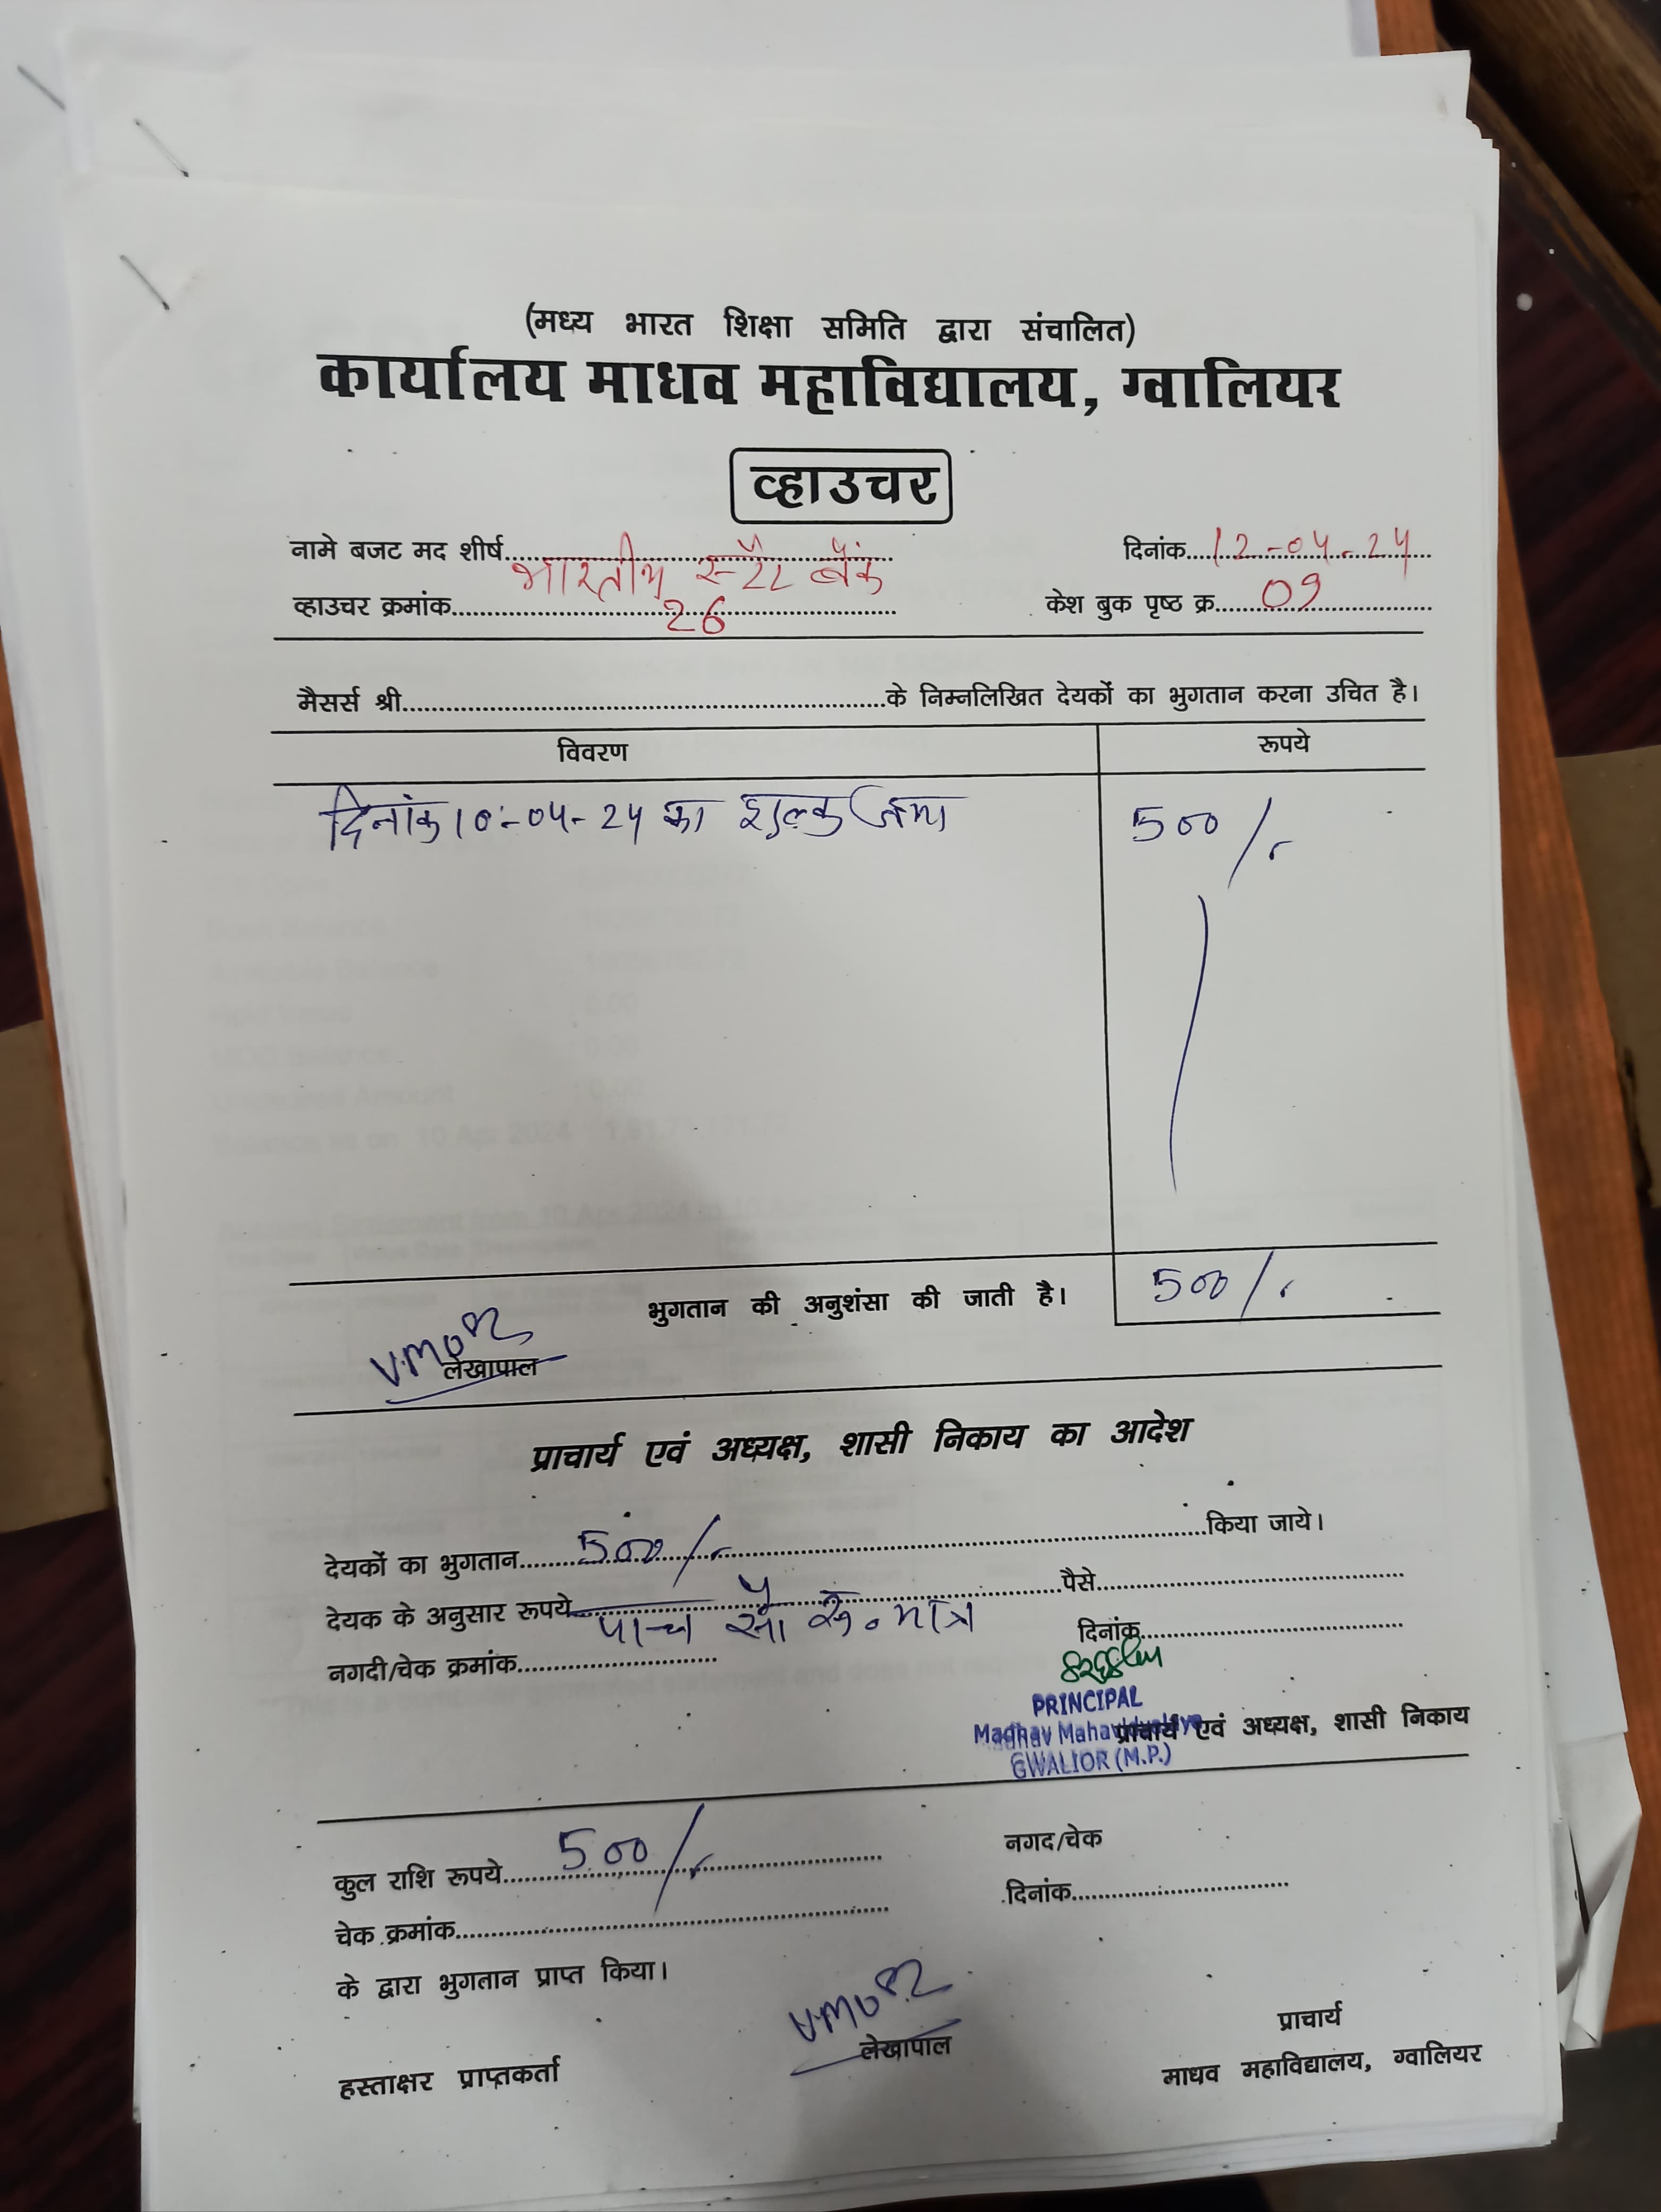 (मध्य भारत शिक्षा समिति द्वारा संचालित)
कार्यालय माधव महाविद्यालय, ग्वालियर
व्हाउचर
नामे बजट मद शीर्ष भारतीय स्टेट बैंक दिनांक 12-04-24
व्हाउचर क्रमांक 26 केश बुक पृष्ठ क्र 09
मैसर्स श्री के निम्नलिखित देयकों का भुगतान करना उचित है।
विवरण रूपये
दिनांक 10-04-24 का शुल्क जमा 500/-
भुगतान की अनुशंसा की जाती है। 500/-
लेखापाल
प्राचार्य एवं अध्यक्ष, शासी निकाय का आदेश
देयकों का भुगतान 500/- किया जाये।
देयक के अनुसार रूपये पाच सौ रू. मात्र पैसे
नगदी/चेक क्रमांक दिनांक
PRINCIPAL
Madhav Mahavidyalaya प्राचार्य एवं अध्यक्ष, शासी निकाय
GWALIOR (M.P.)
कुल राशि रूपये 500/- नगद/चेक
चेक क्रमांक दिनांक
के द्वारा भुगतान प्राप्त किया।
हस्ताक्षर प्राप्तकर्ता लेखापाल प्राचार्य
माधव महाविद्यालय, ग्वालियर